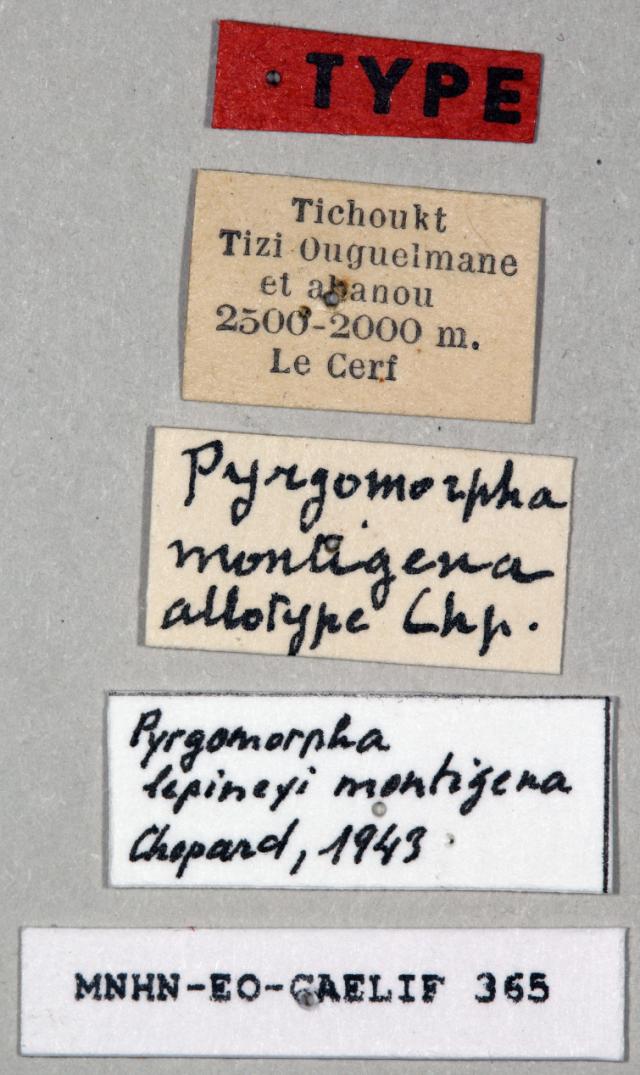 TYPE
Tichoukt
Tizi Ouguelmane
et abanou
2500-2000 m.
Le Cerf
Pyrgomorpha
montigena
allotype Chp.
Pyrgomorpha
lepineyi montigena
Chopard, 1943
MNHN-EO-CAELIF 365